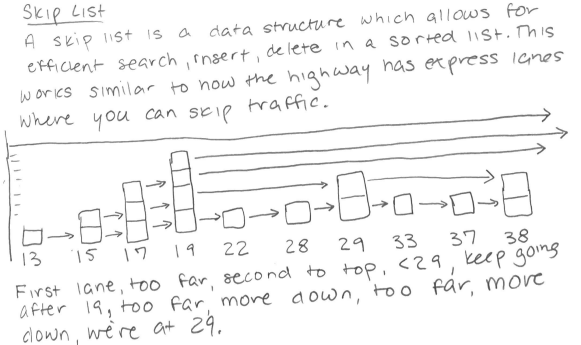 Skip List
A skip list is a data structure which allows for
efficient search, insert, delete in a sorted list. This
works similar to how the highway has express lanes
where you can skip traffic.
13 15 17 19 22 28 29 33 37 38
First lane, too far, second to top, <29, keep going
after 19, too far, move down, too far, move
down, we're at 29.